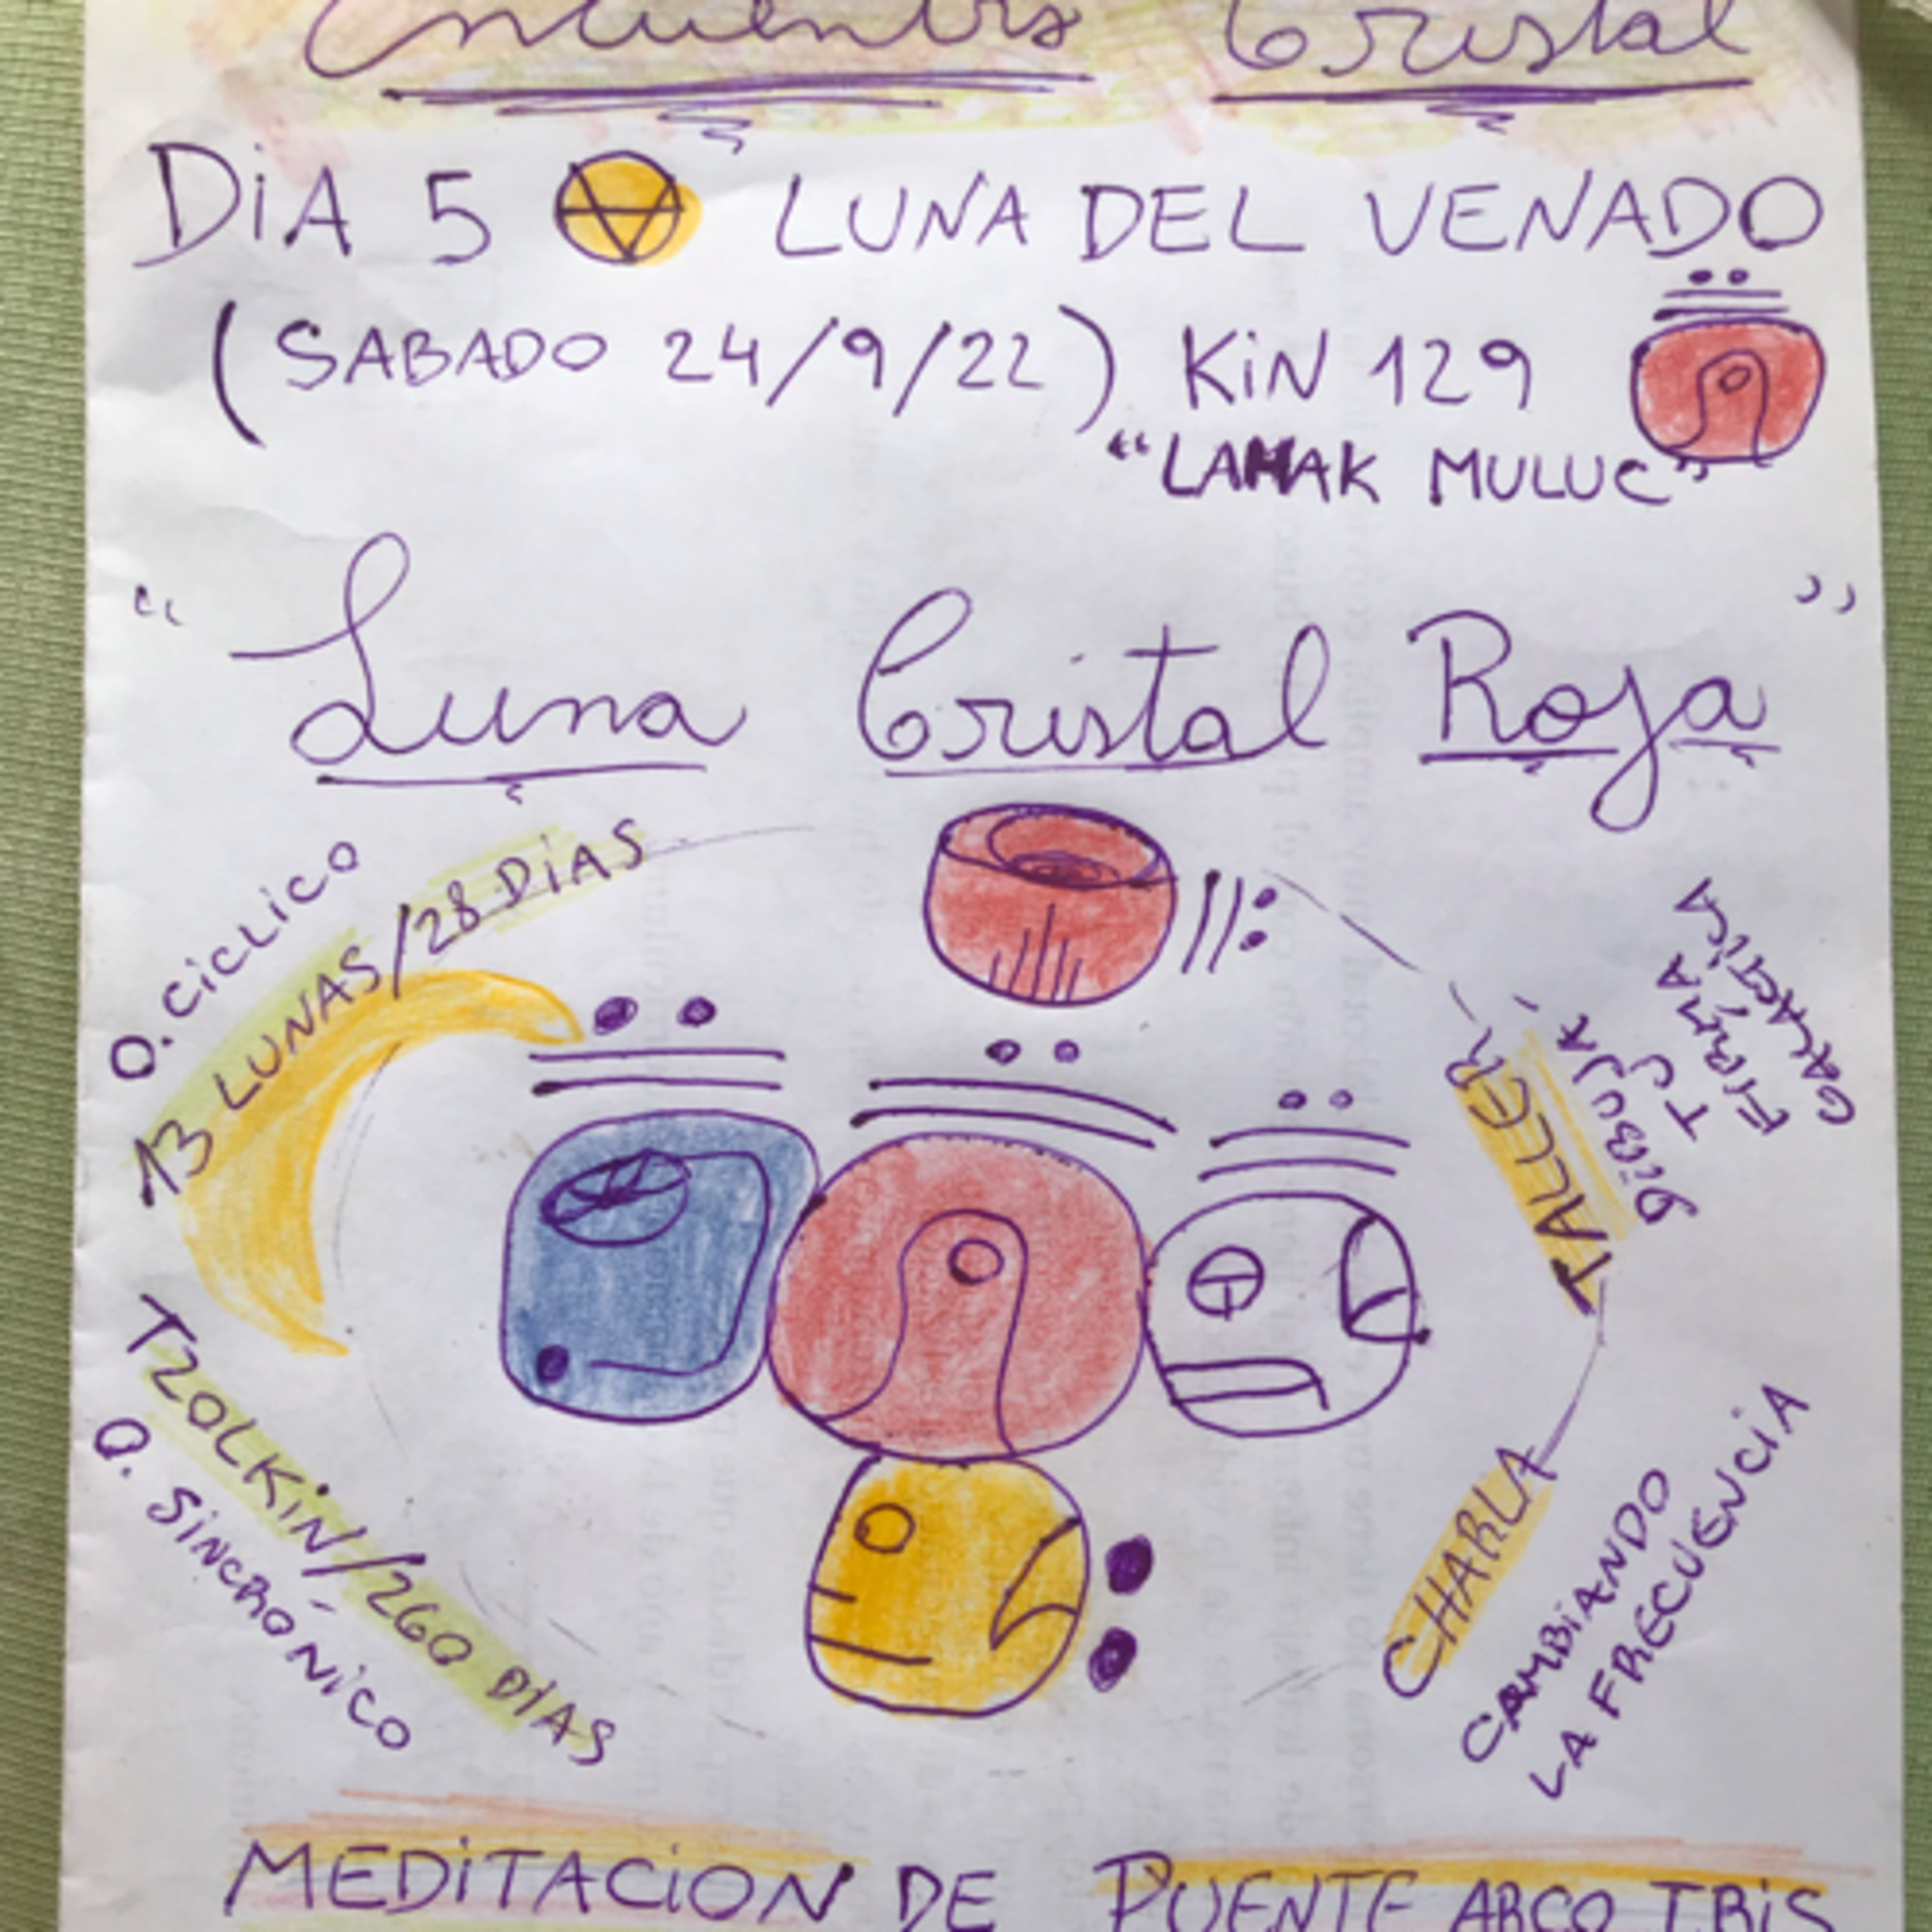 Encuentro Cristal
DIA 5 LUNA DEL VENADO
(SABADO 24/9/22) KIN 129
"LAHAK MULUC"
"Luna Cristal Roja"
O. CICLICO
13 LUNAS/28 DIAS
TALLER:
DIBUJÁ
TU
FIRMA
GALÁCTICA
TZOLKIN/260 DIAS
O. SINCRÓNICO
CHARLA
CAMBIANDO
LA FRECUENCIA
MEDITACION DE PUENTE ARCO IRIS